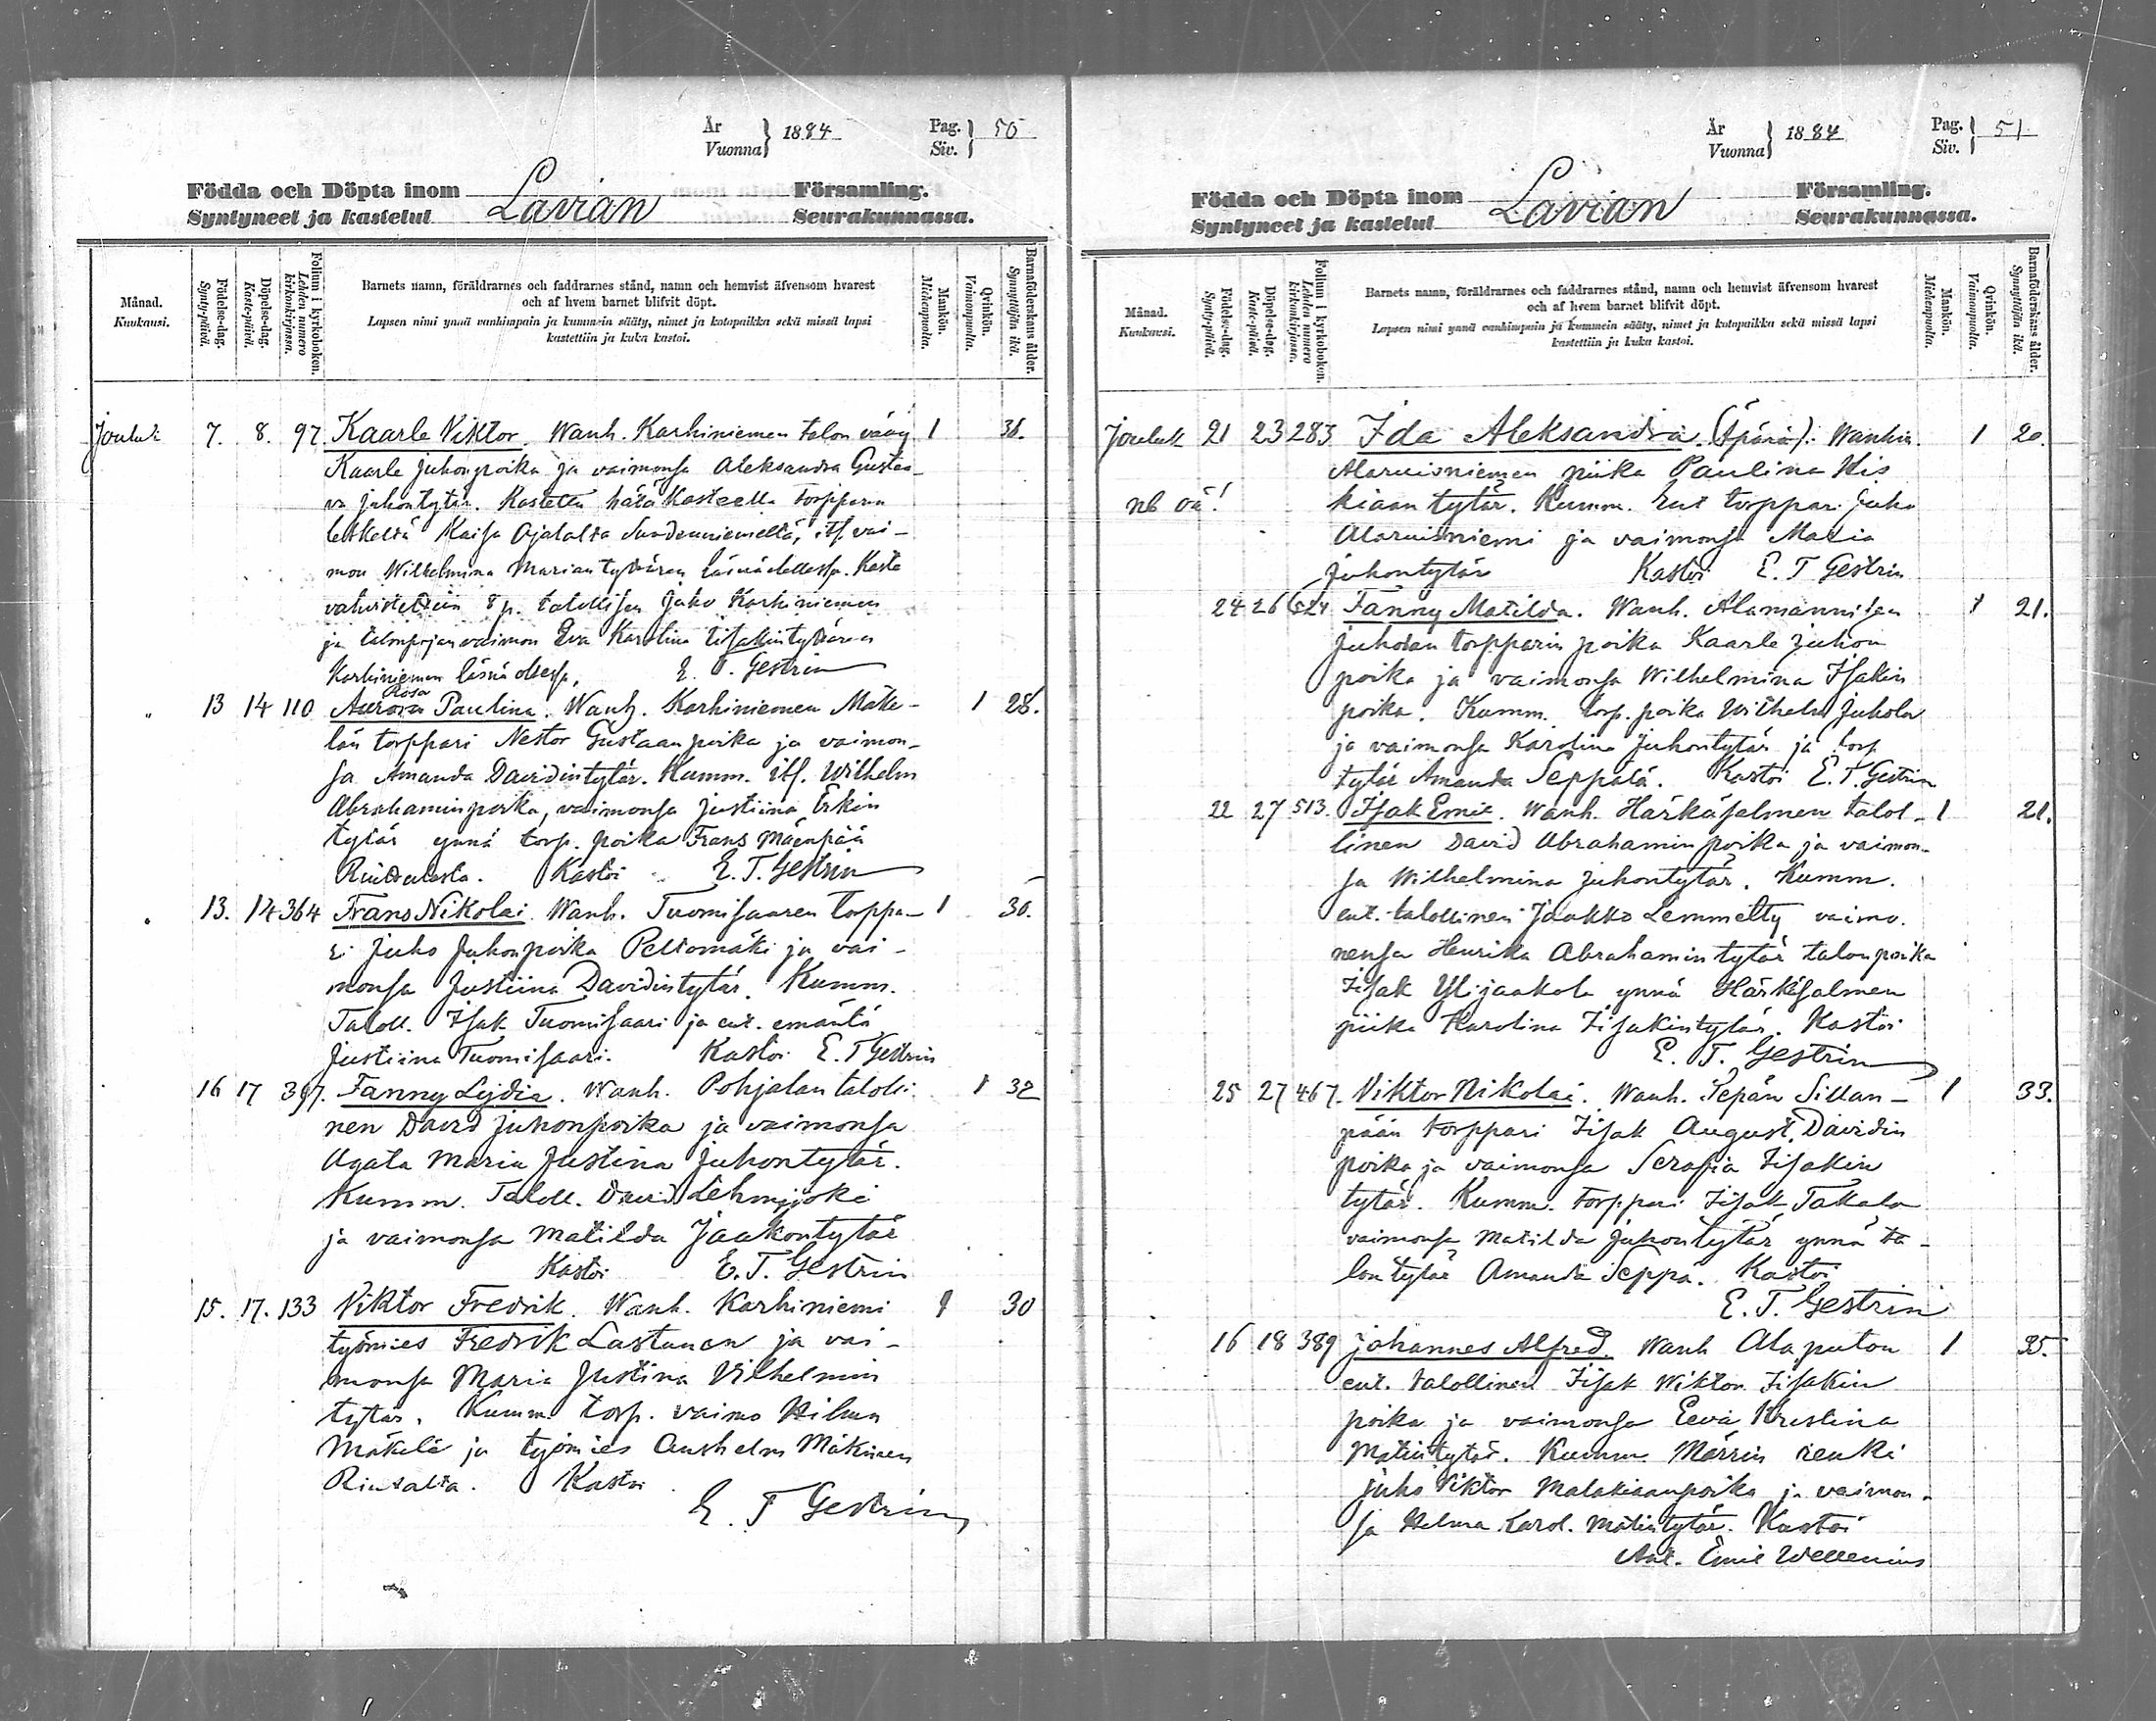 År
Vuonna } 1884
Pag.
Siv. } 50
Födda och Döpta inom Lavian Församling.
Syntyneet ja kastetut Seurakunnassa.
Månad.
Kuukausi.
Födelse-dag.
Synty-päivä.
Döpelse-dag.
Kaste-päivä.
Folium i kyrkoboken.
Lehden numero kirkonkirjassa.
Barnets namn, föräldrarnes och faddrarnes stånd, namn och hemvist äfvensom hvarest
och af hvem barnet blifvit döpt.
Lapsen nimi ynnä vanhimpain ja kummein sääty, nimet ja kotopaikka sekä missä lapsi
kastettiin ja kuka kastoi.
Mankön.
Miehenpuolta.
Qvinkön.
Vaimonpuolta.
Barnaföderskans ålder.
Synnyttäjän ikä.
Jouluk 7. 8. 97 Kaarle Viktor. Wanh. Karhiniemen talon vävy 1 36.
Kaarle Juhonpoika ja vaimonsa Aleksandra Gusta-
va Juhontytär. Kastettu hätäkasteella torpparin
leskeltä Kaisa Ojalalta Suodenniemeltä, its. vai-
mon Wilhelmina Marian tyttären läsnäollessa. Kaste
vahvistettiin 8 p. talollisen Juho Karhiniemen
ja talonpojan vaimon Eva Karolina Iisakintyttären
Karhiniemen läsnäollessa. E. T. Gestrin
Rosa
" 13 14 110 Aurora Paulina. Wanh. Karhiniemen Mäke- 1 28.
län torppari Nestor Gustaanpoika ja vaimon-
sa Amanda Davidintytär. Kumm. its. Wilhelm
Abrahaminpoika, vaimonsa Justiina Erkin
tytär ynnä torp. poika Frans Mäenpää
Kastoi E. T. Gestrin
" 13. 14 364 Frans Nikolai. Wanh. Tuomisaaren torppa- 1 30.
ri Juho Juhonpoika Peltomäki ja vai-
monsa Justiina Davidintytär. Kumm.
Taloll. Isak Tuomisaari ja ent. emäntä
Justiina Tuomisaari. Kastoi E. T Gestrin
16 17 397. Fanny Lydia. Wanh. Pohjalan talolli- 1 32
nen David Juhonpoika ja vaimonsa
Agata Maria Justina Juhontytär.
Kumm. Taloll. David Lehmijoki
ja vaimonsa Matilda Jaakontytär
Kastoi E. T. Gestrin
15. 17. 133 Viktor Fredrik. Wanh. Karhiniemi 1 30
työmies Fredrik Lastunen ja vai-
monsa Maria Justina Vilhelmin
tytär. Kumm. torp. vaimo Hilma
Mäkelä ja työmies Anshelm Mäkinen
Rintalta. Kastoi
E. T Gestrin
År
Vuonna } 1884
Pag.
Siv. } 51
Födda och Döpta inom Lavian Församling.
Syntyneet ja kastetut Seurakunnassa.
Månad.
Kuukausi.
Födelse-dag.
Synty-päivä.
Döpelse-dag.
Kaste-päivä.
Folium i kyrkoboken.
Lehden numero kirkonkirjassa.
Barnets namn, föräldrarnes och faddrarnes stånd, namn och hemvist äfvensom hvarest
och af hvem barnet blifvit döpt.
Lapsen nimi ynnä vanhimpain ja kummein sääty, nimet ja kotopaikka sekä missä lapsi
kastettiin ja kuka kastoi.
Mankön.
Miehenpuolta.
Qvinkön.
Vaimonpuolta.
Barnaföderskans ålder.
Synnyttäjän ikä.
Jouluk 21 23 283 Ida Aleksandra. (Äpärä). Wanhin. 1 20.
Alaruisniemen piika Paulina His
nb oä! kiaan tytär. Kumm. Ent torppar. Juho
Alaruisniemi ja vaimonsa Maria
Juhontytär Kastoi E. T Gestrin
24 26 624 Fanny Matilda. Wanh. Alamannisen 1 21.
Juholan torpparin poika Kaarle Juhon
poika ja vaimonsa Wilhelmina Isakin
poika. Kumm. torp. poika Wilhelm Juhola
ja vaimonsa Karolina Juhontytär ja torp
tytär Amanda Seppälä. Kastoi E. T. Gestrin
22 27 513. Isak Emil. Wanh. Härkäsalmen talol- 1 21.
linen David Abrahamin poika ja vaimon-
sa Wilhelmina Juhontytär. Kumm.
ent. talollinen Jaakko Lemmetty vaimo.
nensa Henrika Abrahamintytär talonpoika
Iisak Ylijaakola ynnä Härkäsalmen
piika Karolina Iisakintytär. Kastoi
E. T. Gestrin
25 27 467. Viktor Nikolai. Wanh. Sepän Sillan- 1 33.
pään torppari Iisak August Davidin
poika ja vaimonsa Serafia Iisakin
tytär. Kumm. torppari Iisak Takala
vaimonsa Matilda Juhontytär ynnä ta-
lon tytär Amanda Seppä. Kastoi
E. T. Gestrin
16 18 389 Johannes Alfred. Wanh Alaputon 1 35.
ent. talollinen Iisak Wiktor Iisakin
poika ja vaimonsa Eeva Kristina
Matintytär. Kumm. Märrin renki
Juho Viktor Malakiaanpoika ja vaimon-
sa Helma Karol. Matintytär. Kastoi
Ant. Emil Wellenius